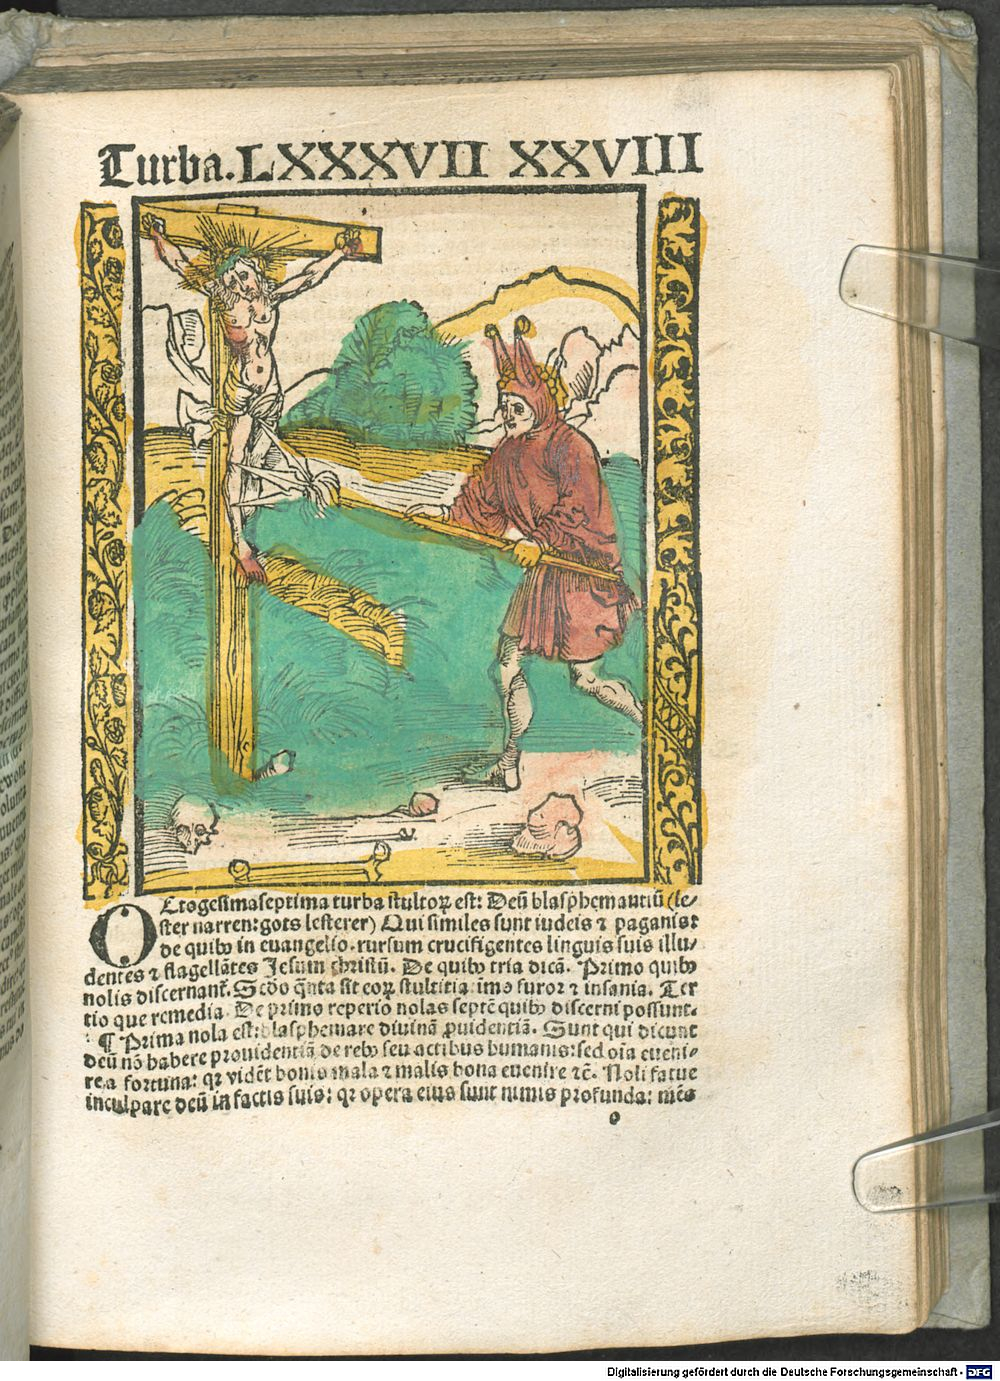 Turba. LXXXVII XXVIII
OCtogesimaseptima turba stultoꝝ est: Deū blasphemantiū (le⸗
ster narren: gots lesterer) Qui similes sunt iudeis ⁊ paganis:
de quibꝰ in euangelio. rursum crucifigentes linguis suis illu⸗
dentes ⁊ flagellātes Jesum christū. De quibꝰ tria dicā. Primo quibꝰ
nolis discernant̄. Scd̄o q̄nta sit eoꝝ stultitia: imo furor ⁊ insania. Ter
tio que remedia. De primo reperio nolas septē quibꝰ discerni possunt.
¶ Prima nola est: blasphemare diuinā ꝓuidentiā. Sunt qui dicunt
deū nō habere prouidentiā de rebꝰ seu actibus humanis: sed oīa eueni⸗
re a fortuna: qꝛ vidēt bonis mala ⁊ malis bona euenire ⁊c̄. Noli fatue
inculpare deū in factis suis: qꝛ opera eius sunt nimis profunda: mēs
o
Digitalisierung gefördert durch die Deutsche Forschungsgemeinschaft - DFG